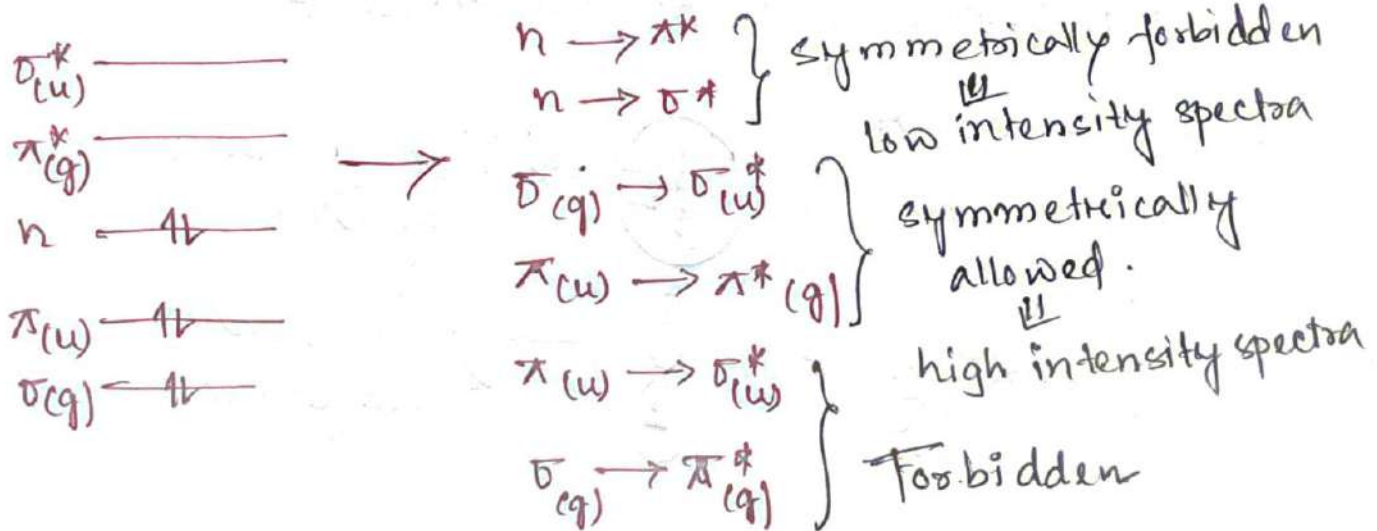 σ*(u)
π*(g)
n ⥮
π(u) ⥮
σ(g) ⥮
→
n → π*
n → σ*
symmetrically forbidden
⇓
low intensity spectra
σ(g) → σ*(u)
π(u) → π*(g)
symmetrically
allowed.
⇓
high intensity spectra
π(u) → σ*(u)
σ(g) → π*(g)
Forbidden